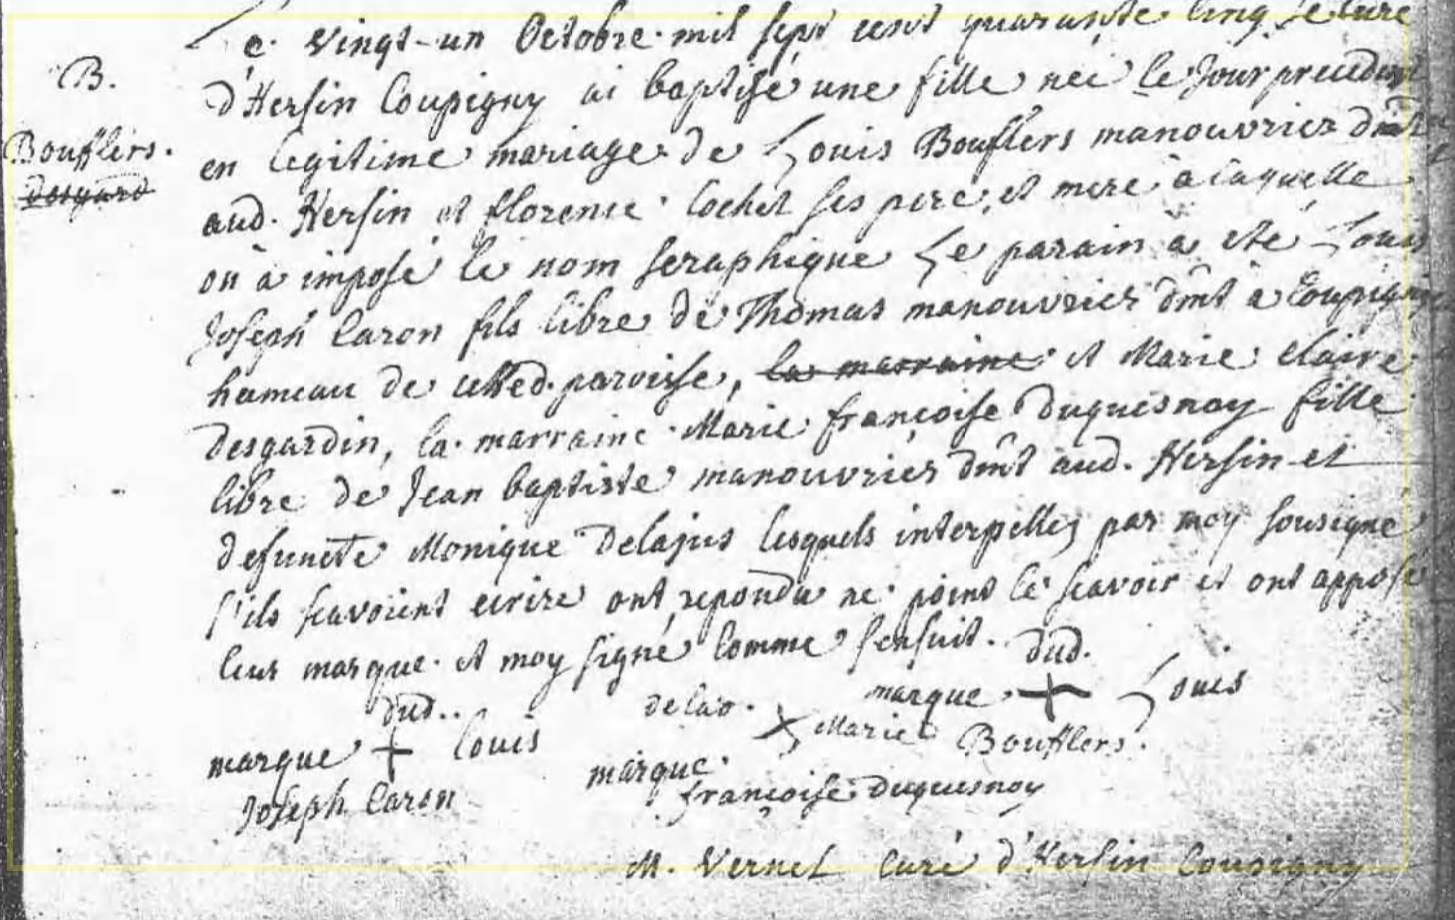 Le vingt-un Octobre mil sept cent quarante cinq je Curé
B.
d'Hersin Coupigny ai baptisé une fille neé le jour precedent
Bouflers.
en legitime mariage de Louis Bouflers manouvrier dmt
desgard
aud. Hersin et florence Cochet ses pere, et mere à laquelle
on à imposé le nom seraphique Le parain a eté Louis
Joseph Caron fils libre de Thomas manouvrier dmt a Coupigny
hameau de cetted. paroisse, la marraine et Marie claire
desgardin, la marraine Marie françoise Duquesnoy fille
libre de Jean baptiste manouvrier dmt aud. Hersin et
defuncte Monique Delajus lesquels interpellés par moy sousigné
s'ils scavoient ecrire ont repondu ne point le scavoir et ont apposé
leur marque et moy signé comme s'ensuit.
dud.. marque + Louis Joseph Caron
de lad. marque x Marie françoise duquesnoy
dud. marque + Louis Bouflers.
M. Vernel Curé d'Hersin Coupigny